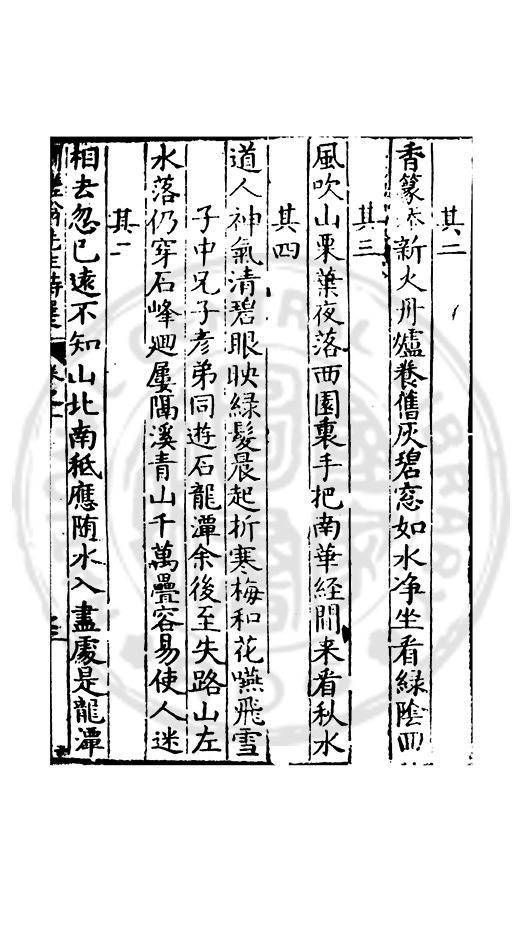 其二
香篆新火丹爐養舊灰碧窓如水净坐看綠陰四
其三
風吹山栗葉夜落西園裏手把南華經閒来看秋水
其四
道人神氣清碧眼映綠髮晨起折寒梅和花嚥飛雪
子中兄子彥弟同遊石龍潭余後至失路山左
水落仍穿石峰廻屢隔溪青山千萬疊容易使人迷
其二
相去忽已遠不知山北南秪應随水入盡處是龍潭